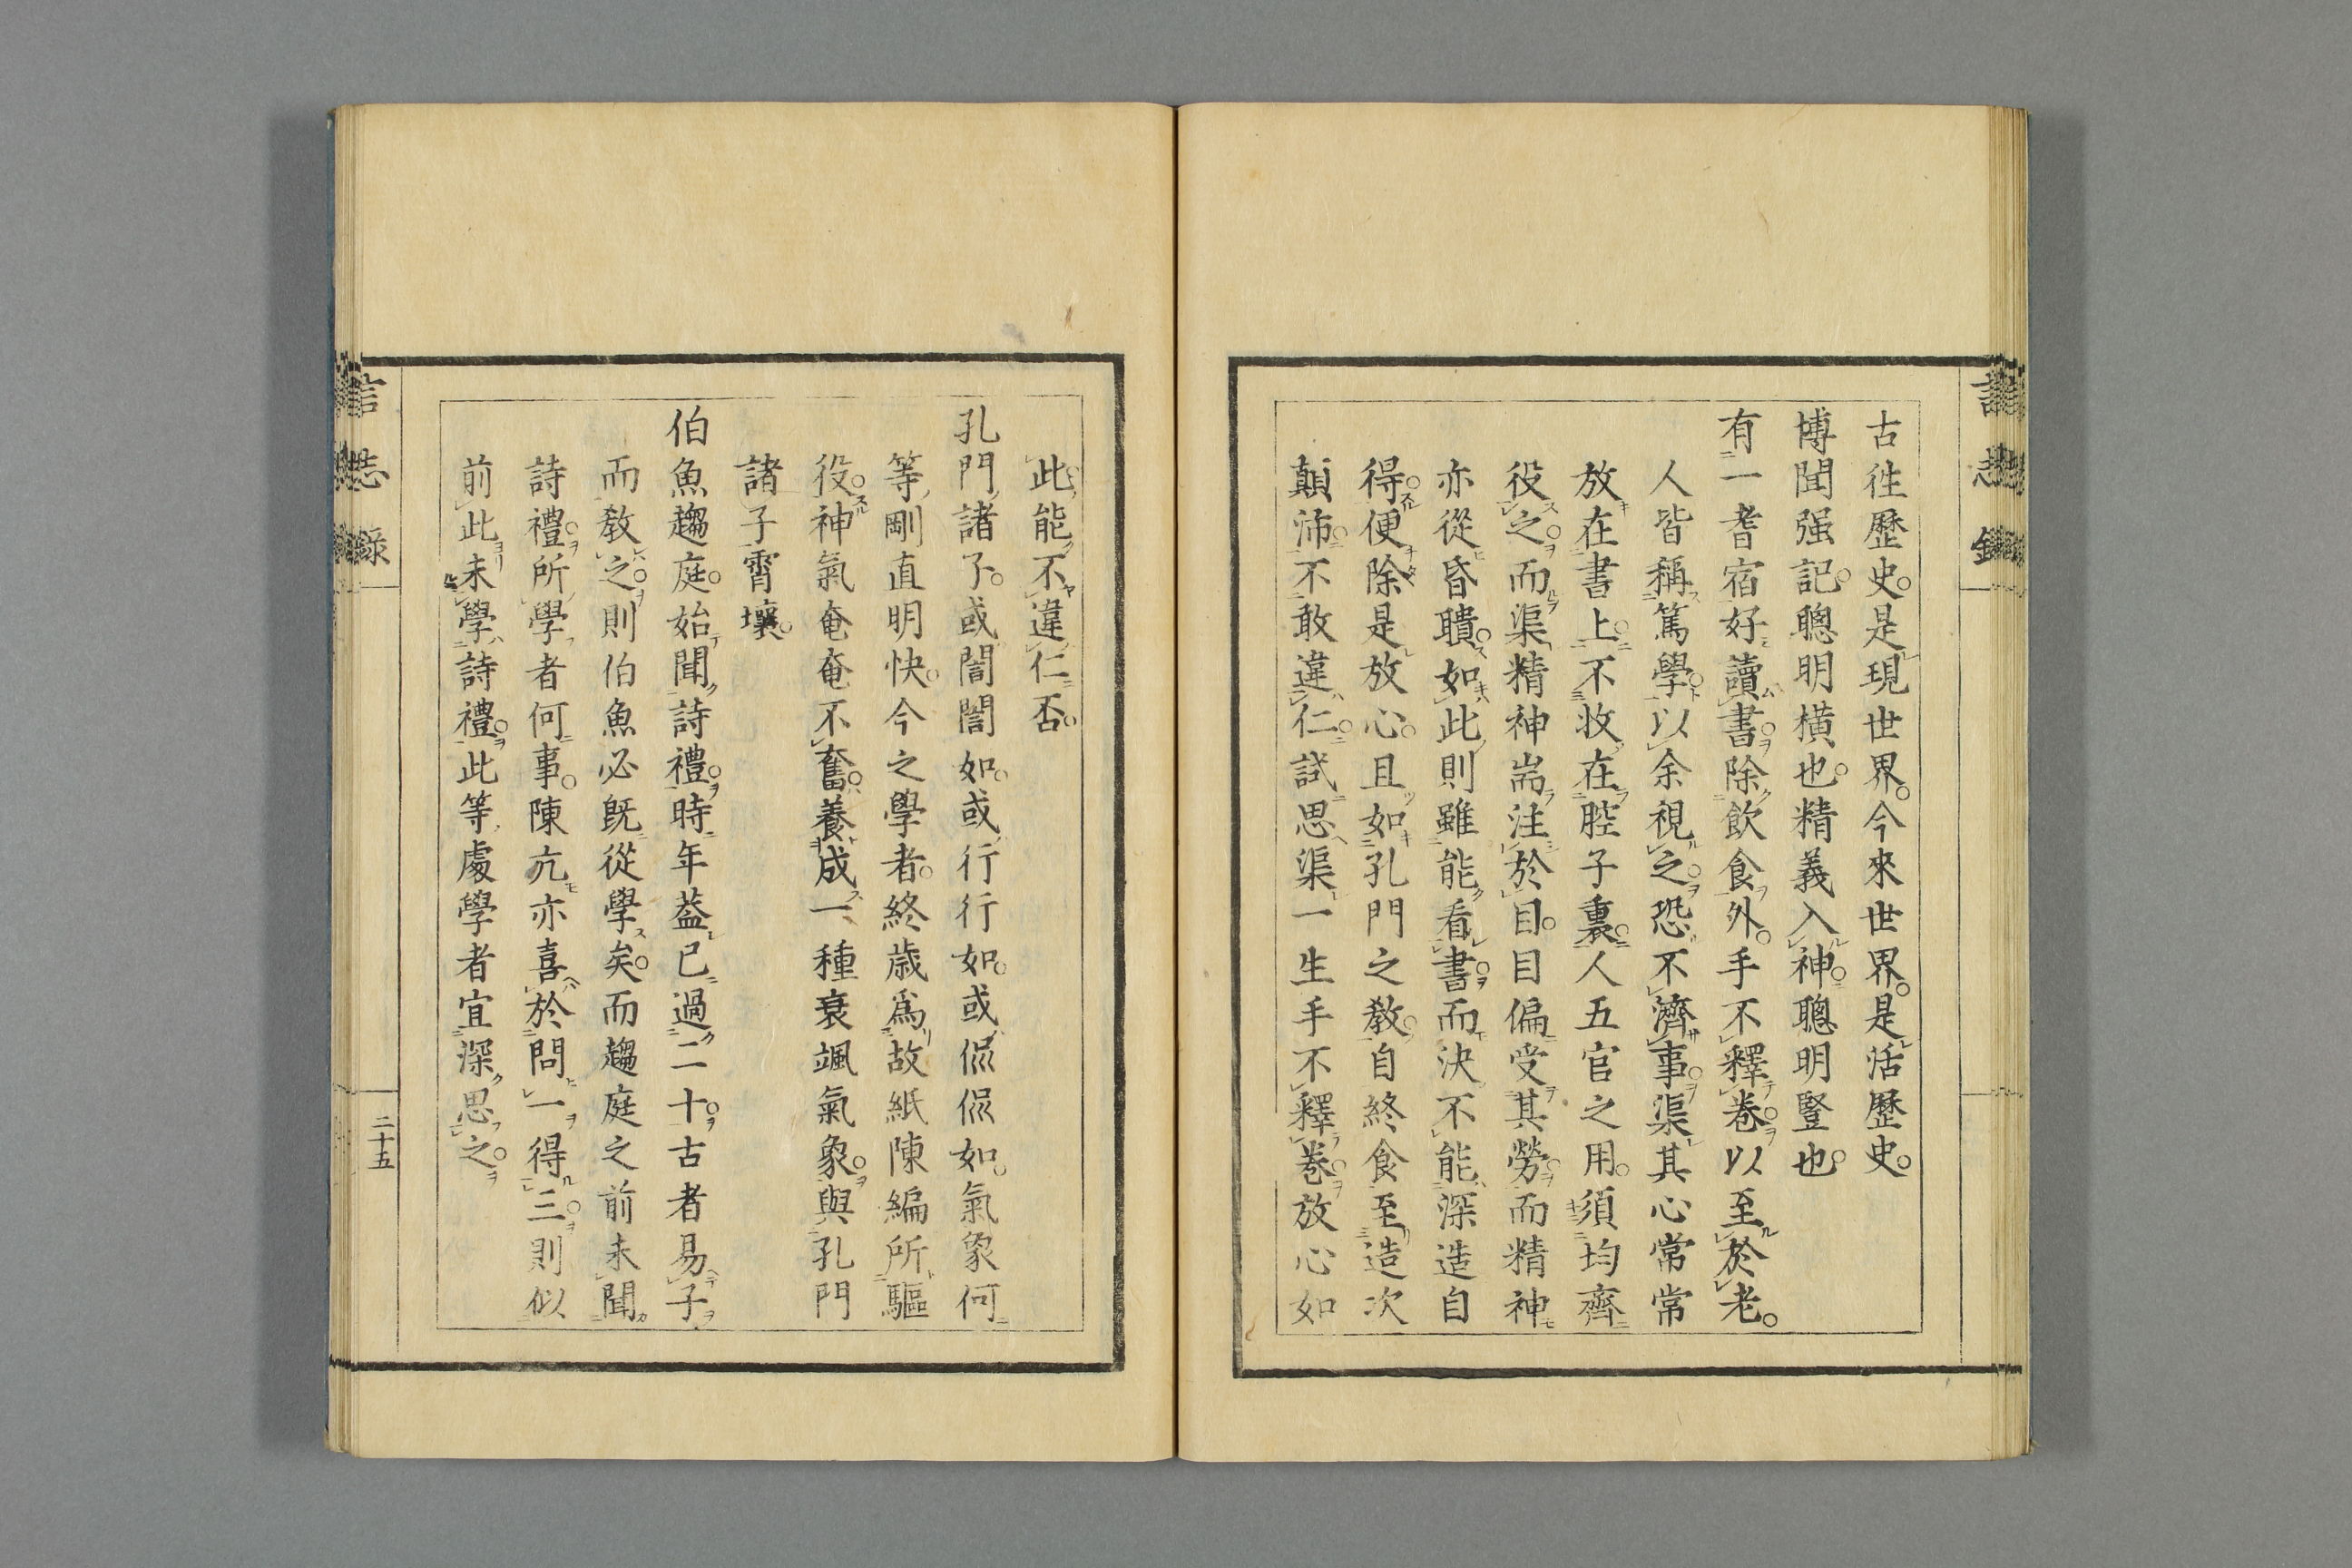 古徃歷史。是現世界。今來世界。是活歷史。
博聞强記。聰明橫也。精義入神。聰明豎也。
有一耆宿好讀書。除飲食外。手不釋卷。以至於老。
人皆稱篤學。以余視之。恐不濟事。渠其心常常
放在書上。不收在腔子裏。人五官之用。須均齊
役之。而渠精神耑注於目。目偏受其勞。而精神
亦從昏聵。如此則雖能看書。而決不能深造自
得。便除是放心。且如孔門之敎。自終食至造次
顛沛。不敢違仁。試思渠一生手不釋卷。放心如
此。能不違仁否。
孔門諸子。或誾誾如。或行行如。或侃侃如。氣象何
等剛直明快。今之學者。終歳爲故紙陳編所驅
役。神氣奄奄不奮。養成一種衰颯氣象。與孔門
諸子霄壤。
伯魚趨庭。始聞詩禮。時年蓋已過二十。古者易子
而敎之。則伯魚必既從學矣。而趨庭之前未聞
詩禮。所學者何事。陳亢亦喜於問一得三。則似
前此未學詩禮。此等處學者宜深思之。
言志錄
二十五